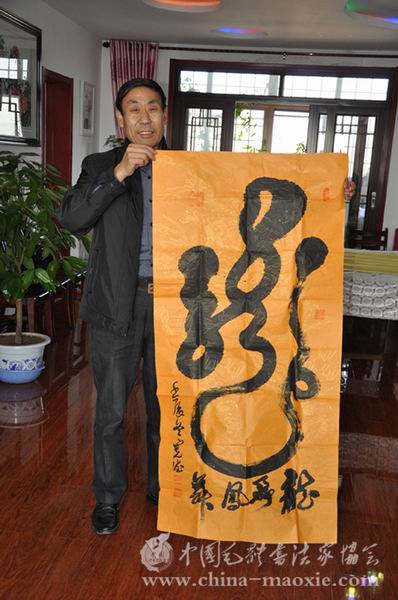 龍飛鳳舞
壬辰冬
中國毛體書法家協會
www.china-maoxie.com